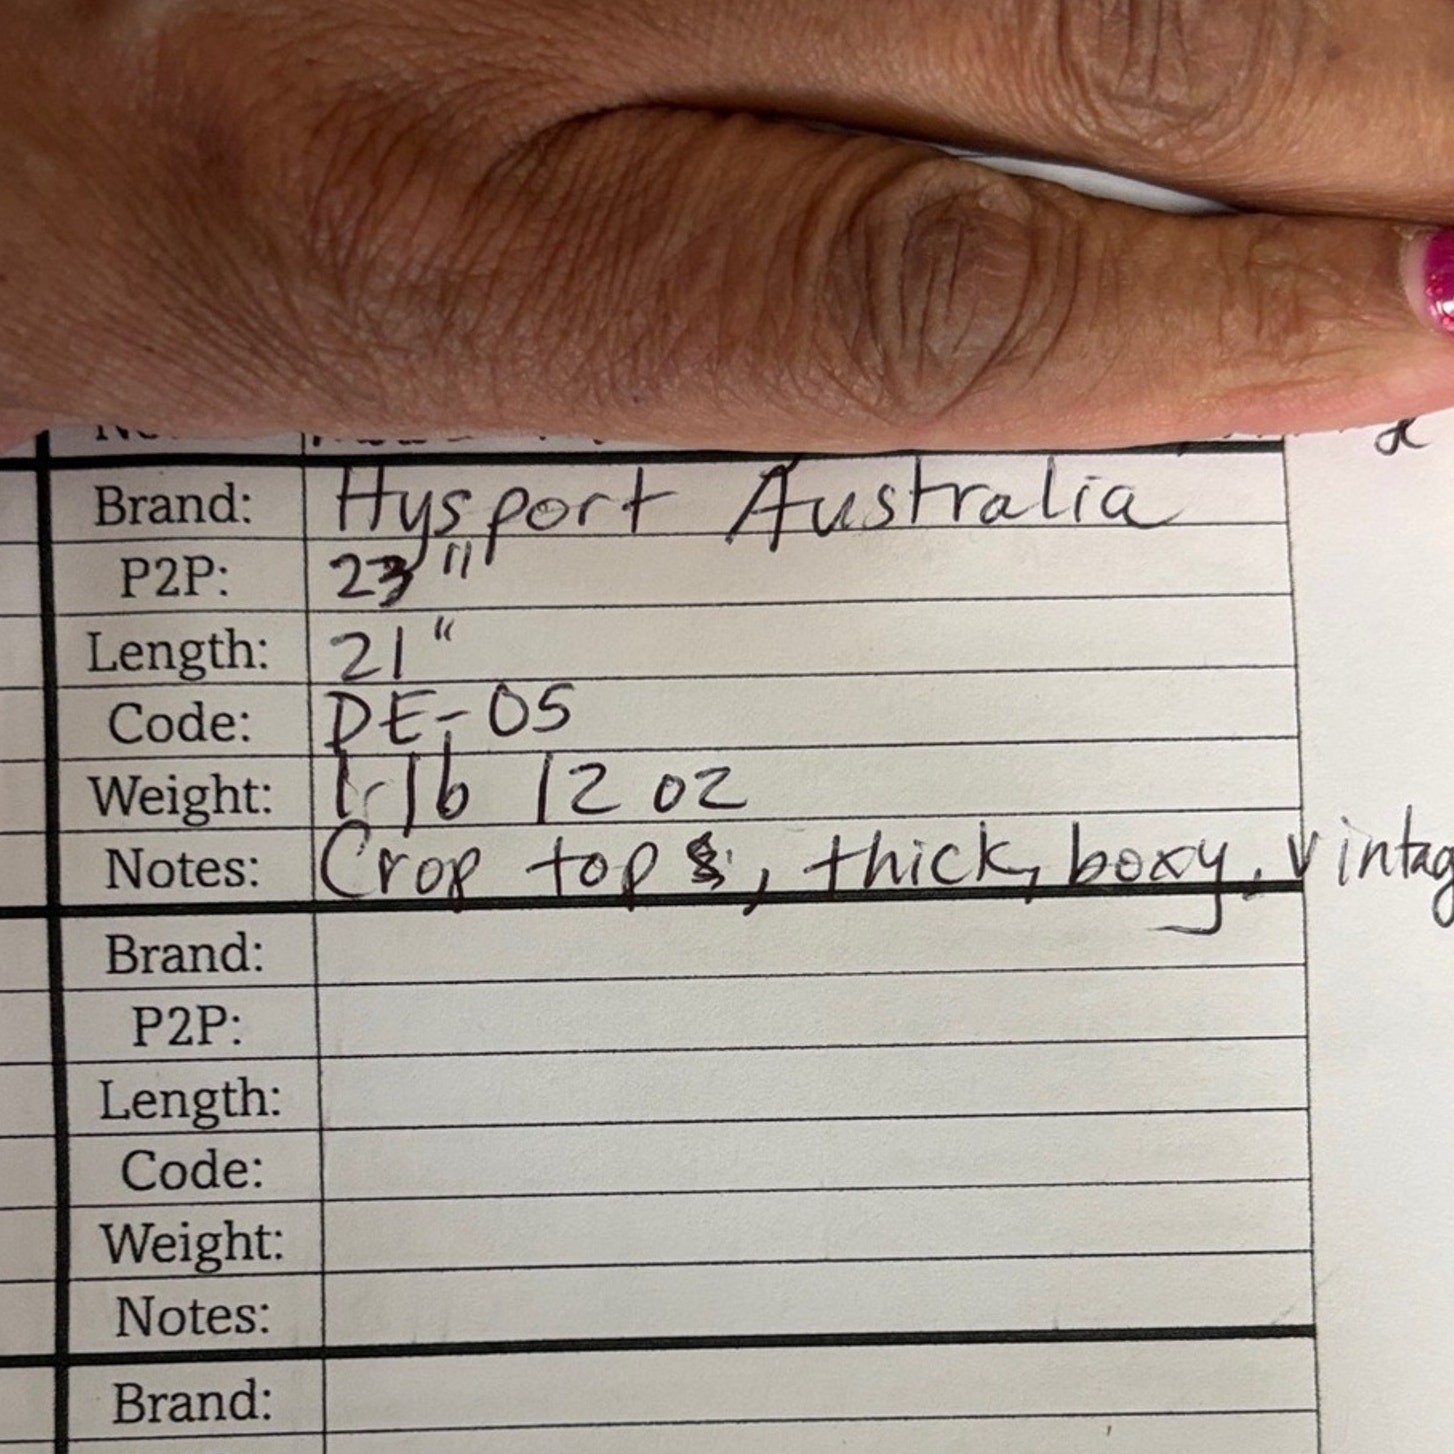 Brand: Hysport Australia
P2P: 23"
Length: 21"
Code: DE-05
Weight: 1 lb 12 oz
Notes: Crop top, thick, boxy, vintag
Brand:
P2P:
Length:
Code:
Weight:
Notes:
Brand: